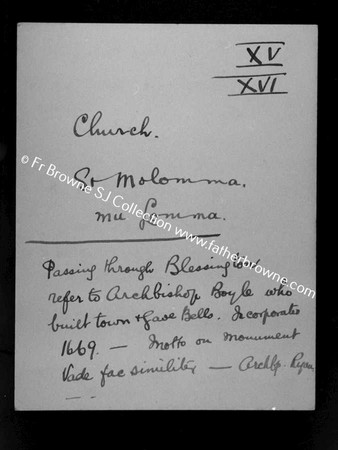 XV
XVI
Church.
St Molomma.
mu Lomma.
© Fr Browne SJ Collection www.fatherbrowne.com
Passing through Blessington
refer to Archbishop Boyle who
built town & gave Bells. Incorporated
1669. — Motto on monument
Vade fac similiter — Archbp.